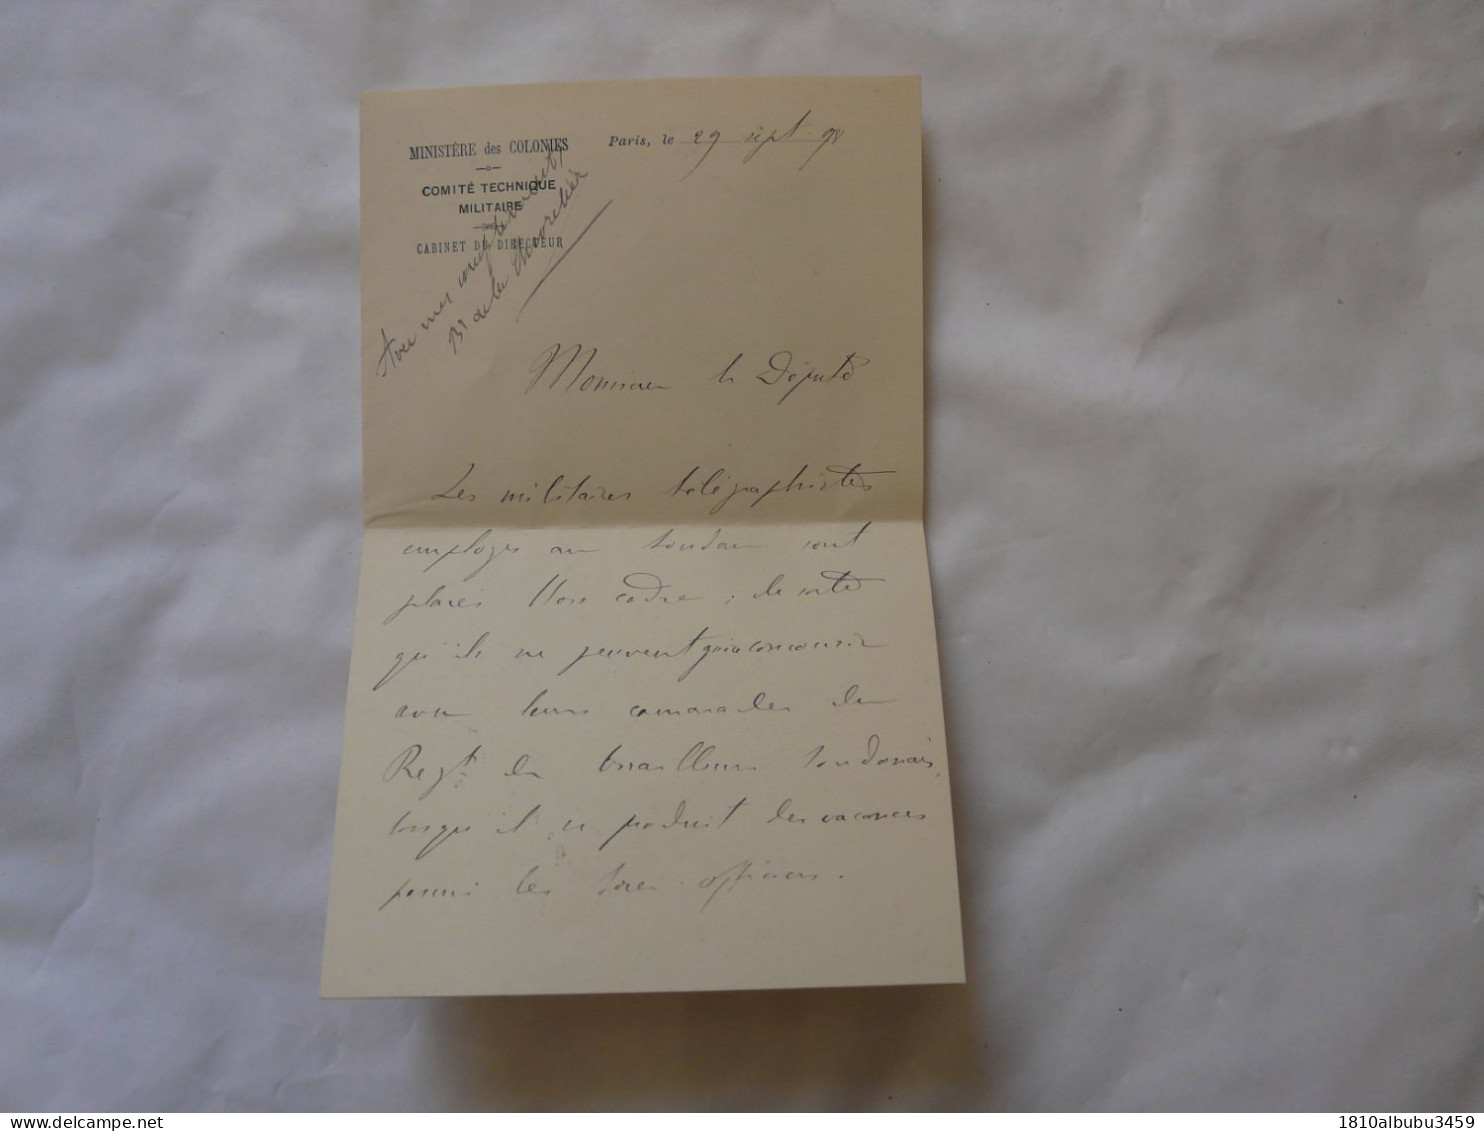 MINISTÈRE des COLONIES
COMITÉ TECHNIQUE
MILITAIRE
CABINET DU DIRECTEUR
Paris, le 29 sept 98
Avec mes
Bn de la
Monsieur le Député
Les militaires télégraphistes
employés au Soudan sont
placés Hors cadre ; de sorte
qu'ils ne peuvent concourir
avec leurs camarades du
Regt de tirailleurs Soudanais,
lorsqu'il se produit des vacances
parmi les sous officiers.
1810albubu3459